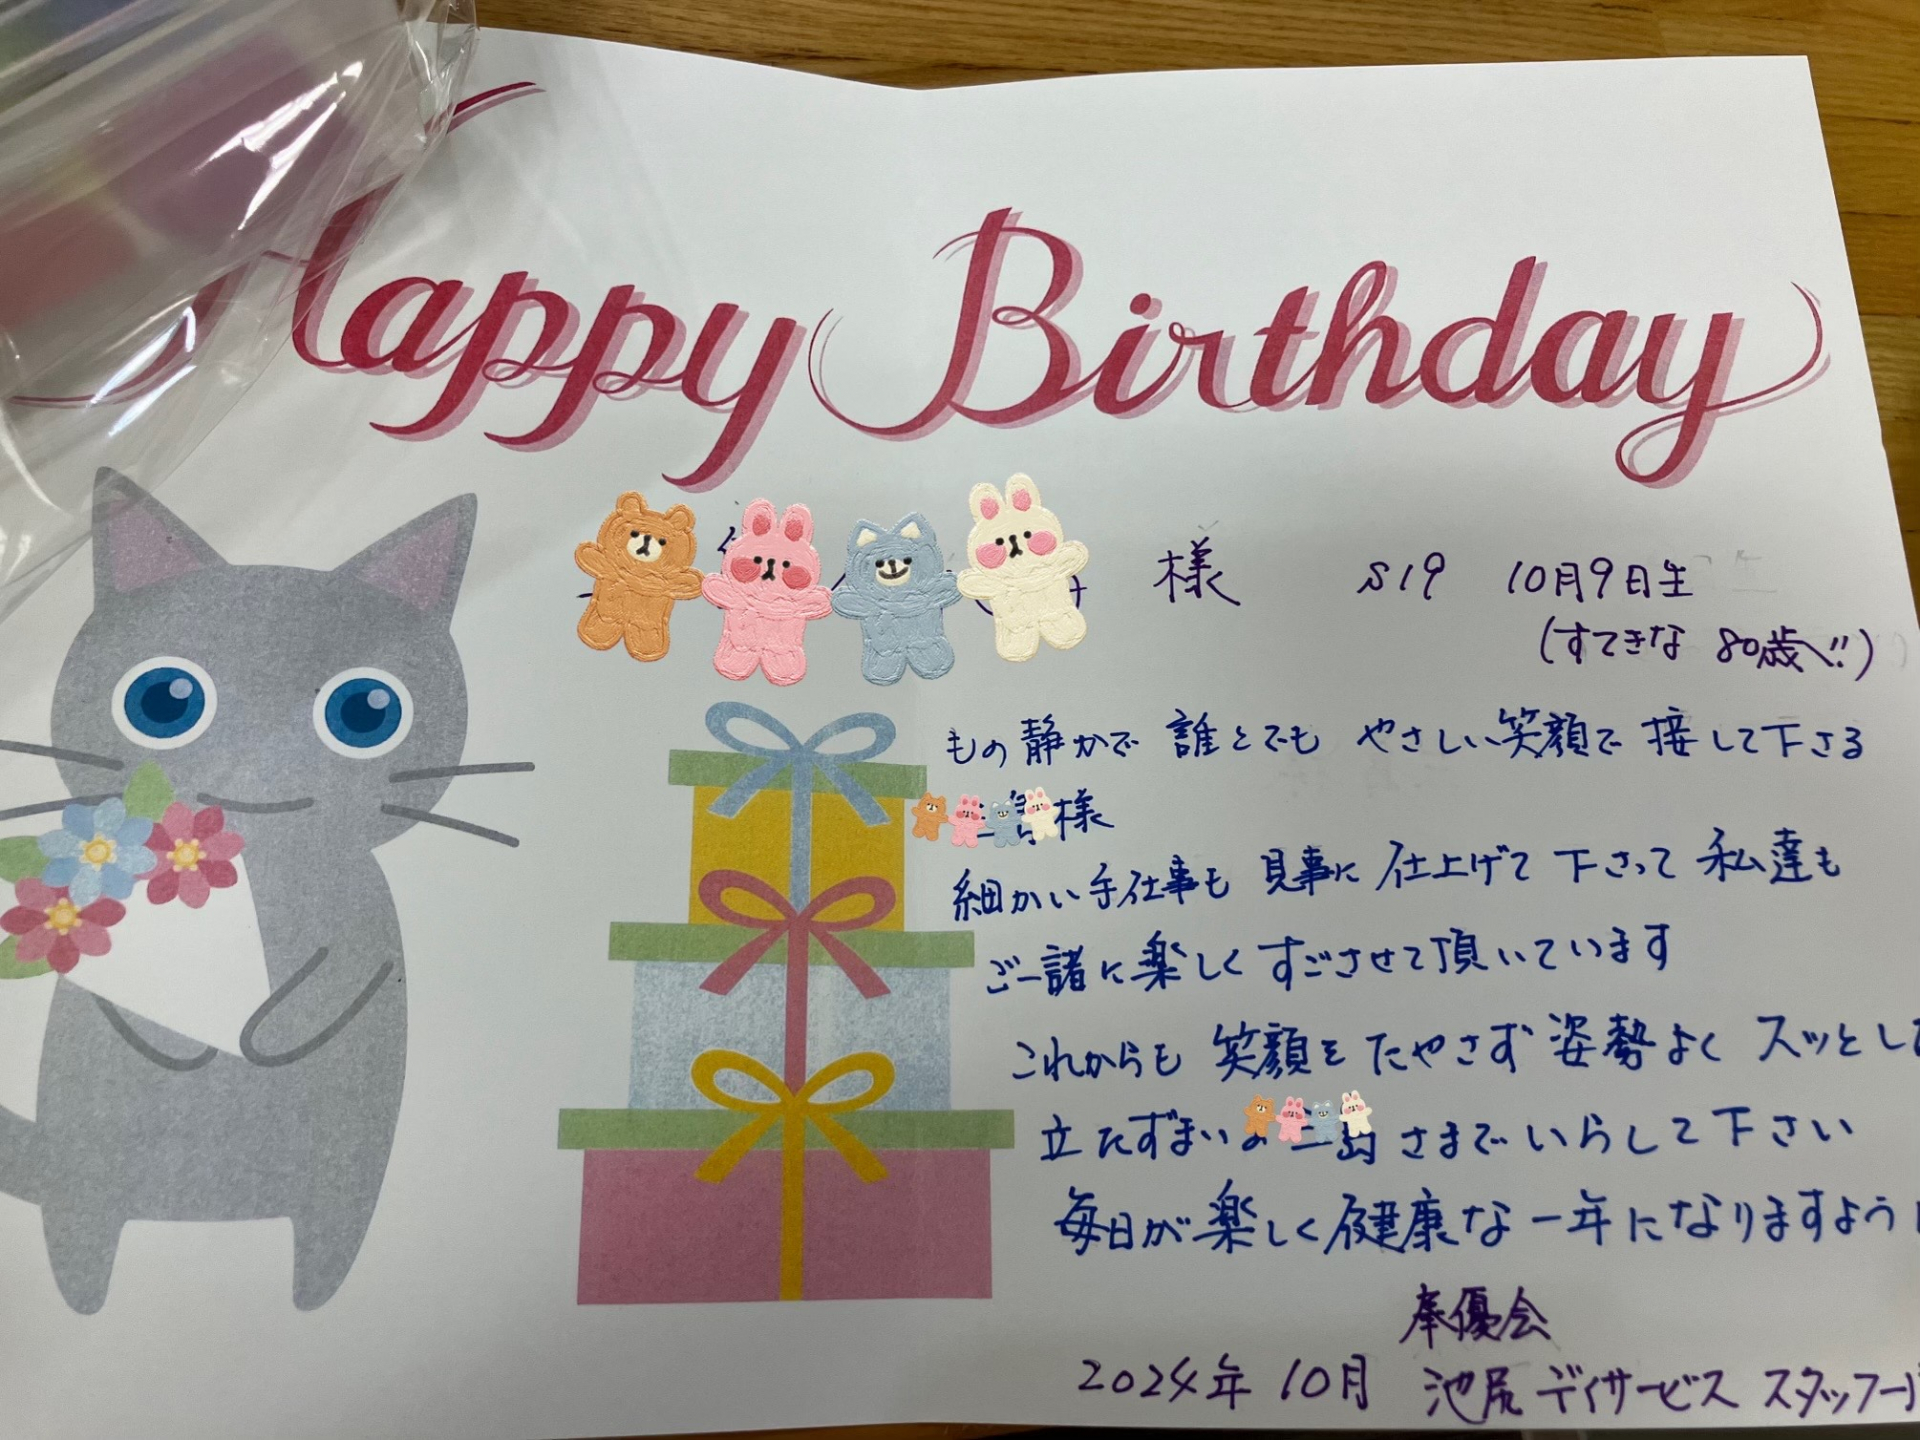 Happy Birthday
様 S19 10月9日生
(すてきな 80歳へ!!)
もの静かで 誰とでも やさしい笑顔で 接して下さる
様
細かい手仕事も 見事に 仕上げて 下さって 私達も
ご一諸に楽しく すごさせて頂いています
これからも 笑顔を たやさず 姿勢よく スッとした
立たずまいの さまで いらして下さい
毎日が楽しく健康な一年になりますように
奉優会
2024年 10月 池尻デイサービス スタッフ一同